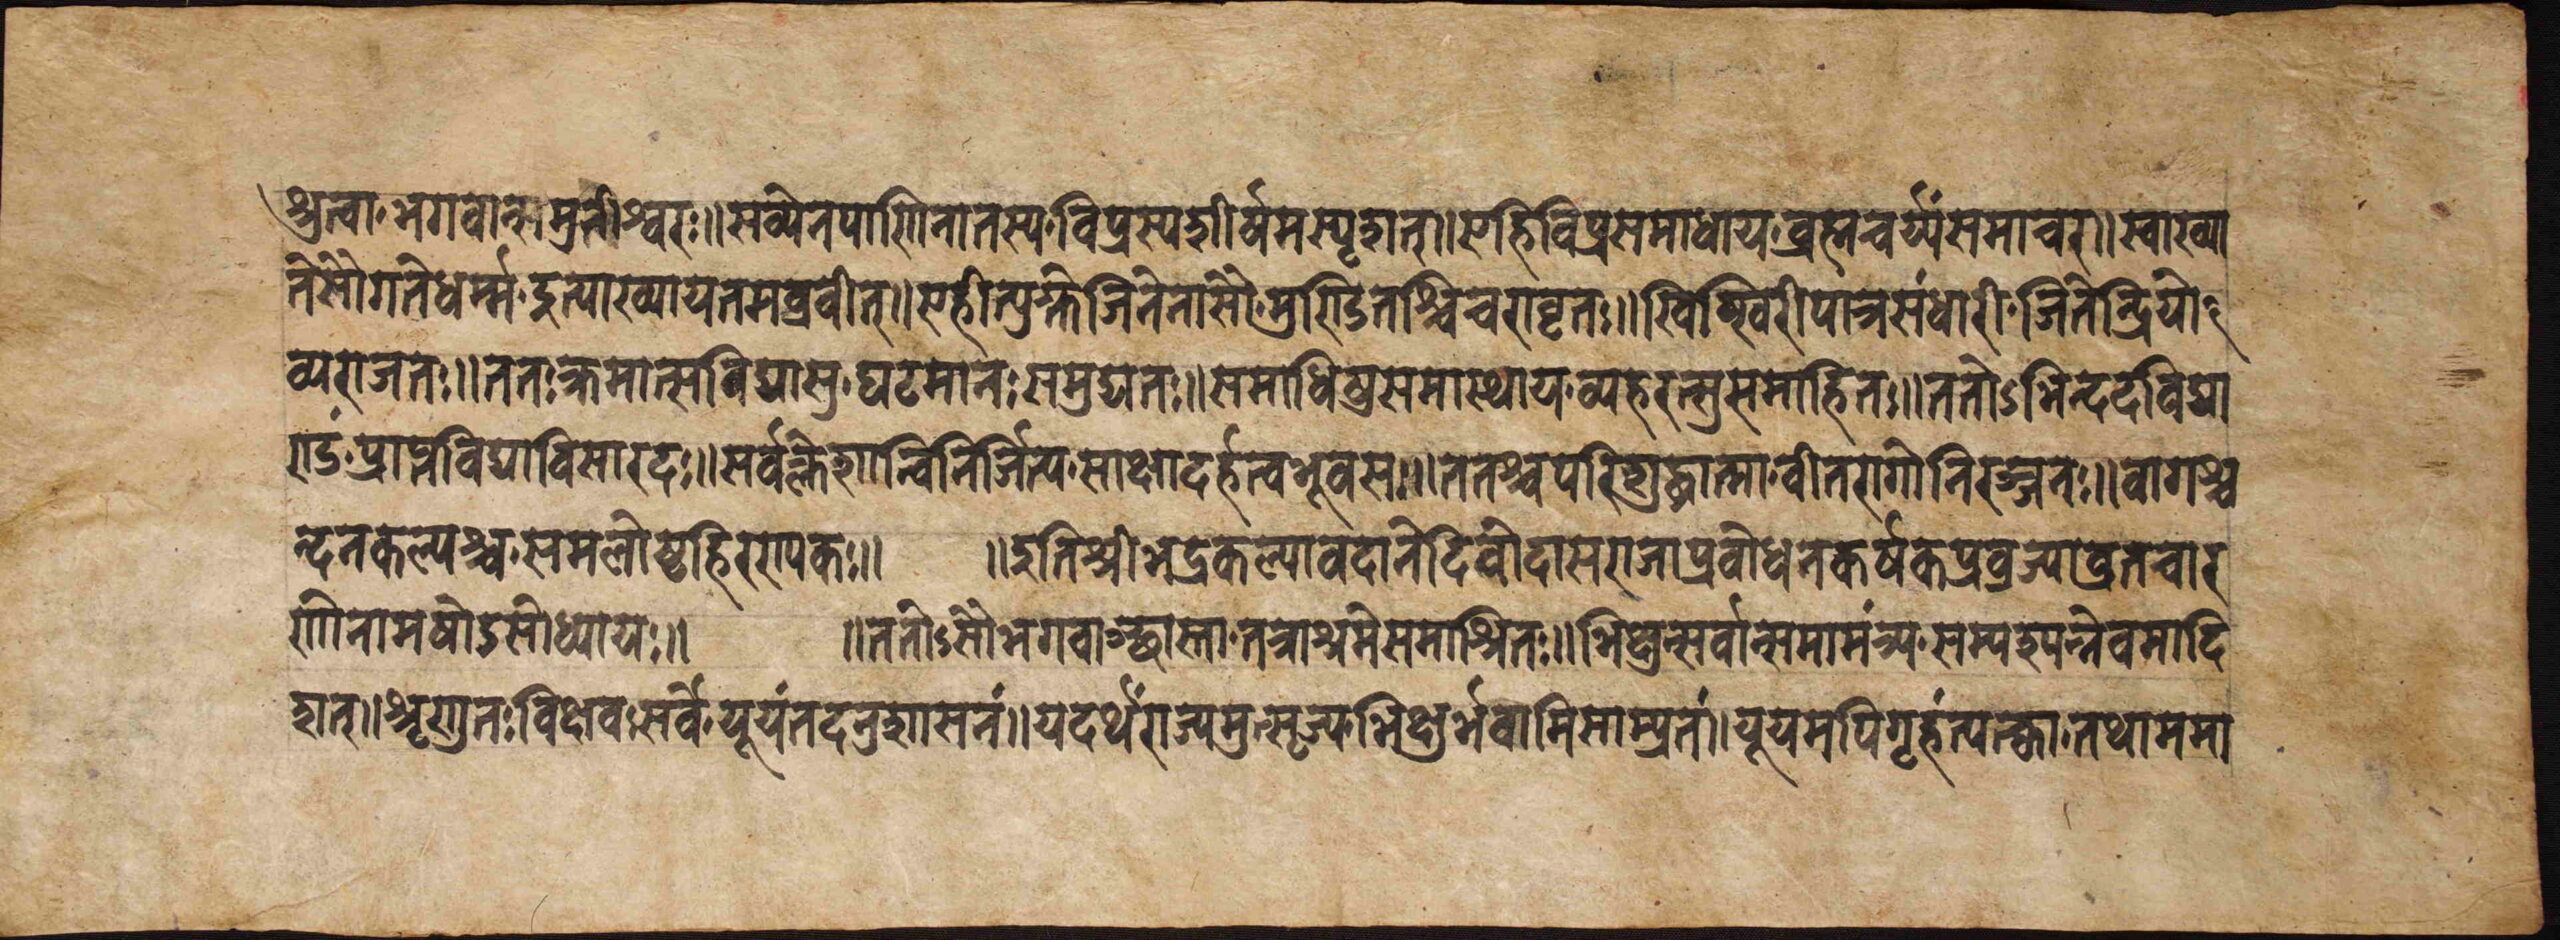 श्रुत्वा भगवान्समुनीश्वरः॥सव्येनपाणिनातस्य विप्रस्यशीर्षमस्पृशत्॥एहिविप्रसमाधाय व्रह्मचर्य्यंसमाचर॥स्वाख्या
तेसौगतेधर्म्म इत्याख्यायतमव्रवीत्॥एहीत्युक्तेजिनेनासौ मुण्डितश्चिवरावृतः॥खिक्खिरीपात्रसंधारी जितेन्द्रियो
व्यराजतः॥ततःक्रमात्सविद्यासु घटमानःसमुद्यतः॥समाधिषुसमास्थाय व्यहरत्सुसमाहितः॥ततोऽभिन्ददविद्या
ण्डं प्राप्तविद्याविसारदः॥सर्वक्लेशान्विनिर्जित्य साक्षादर्हत्वभूवसः॥ततश्चपरिशुद्धात्मा वीतरागोनिरञ्जनः॥वागश्च
न्दनकल्पश्च समलोष्टहिरण्यकः॥ ॥इतिश्रीभद्रकल्पावदानेदिवोदासराजाप्रवोधनकर्षकप्रव्रज्याव्रतचार
णोनामषोडसोध्यायः॥ ॥ततोऽसौभगवाञ्छास्ता तत्राश्रमेसमाश्रितः॥भिक्षुन्सर्वान्समामंत्र्य सम्पश्यन्नेवमादि
शत्॥शृणुतःविक्षवःसर्वे यूयंतदनुशासनं॥यदर्थंराज्यमुत्सृज्य भिक्षुर्भवामिसाम्प्रतं॥यूयमपिगृहंत्यक्त्वा तथाममा